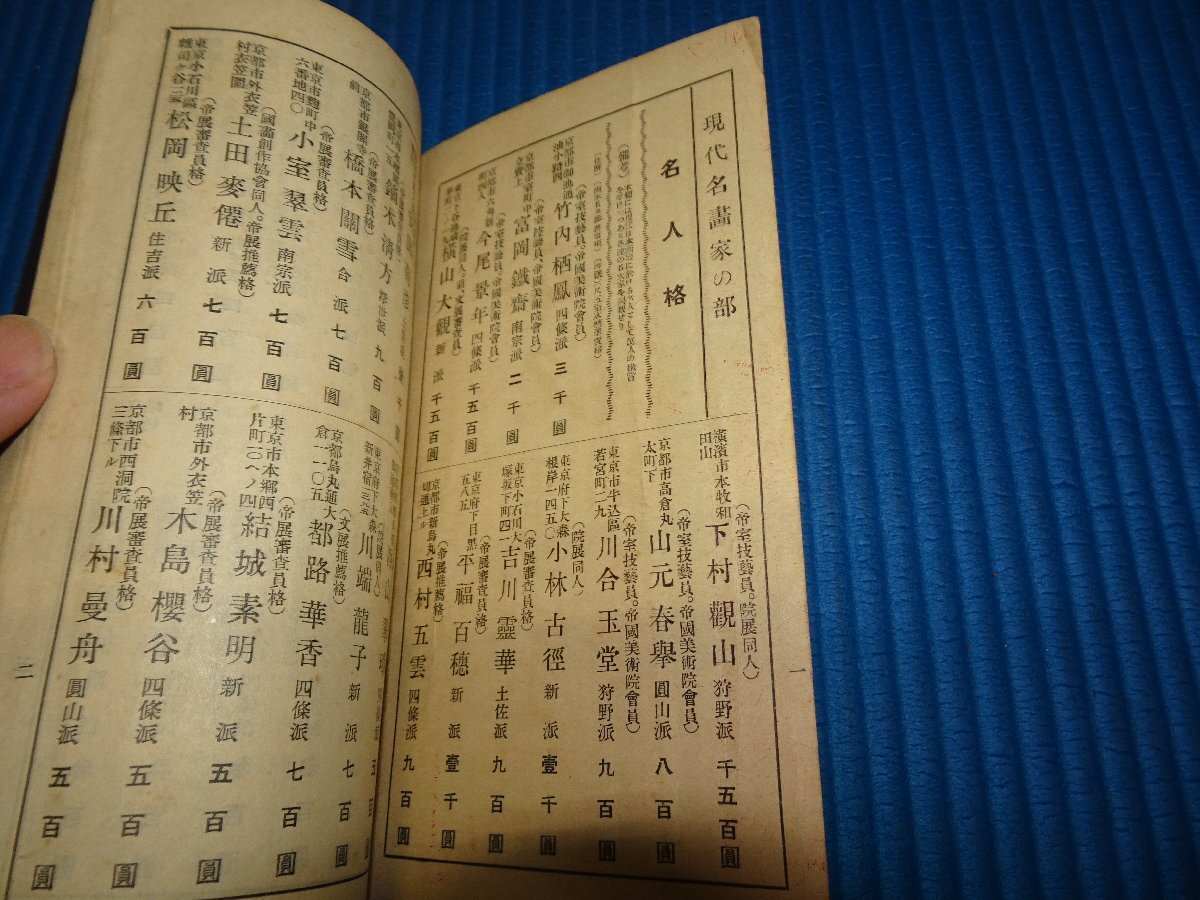 現代名畫家の部
名人格
（備考）
京都市御池通
池小路西
（帝室技藝員。帝國美術院會員）
竹内栖鳳 四條派 三千圓
京都市室町中
立賣上
（帝室技藝員、帝國美術院會員）
富岡鐵齋 南宗派 二千圓
（帝室技藝員。帝國美術院會員）
今尾景年 四條派 千五百圓
橫山大觀 新派 千五百圓
橫濱市本牧和
田山
（帝室技藝員。院展同人）
下村觀山 狩野派 千五百圓
京都市高倉丸
太町下
（帝室技藝員。帝國美術院會員）
山元春擧 圓山派 八百圓
東京市牛込區
若宮町二九
（帝室技藝員。帝國美術院會員）
川合玉堂 狩野派 九百圓
東京府下大森
根岸一四五〇
（院展同人）
小林古徑 新派 壹千圓
東京小石川大
塚坂下町四一
（帝展審査員格）
吉川靈華 土佐派 九百圓
東京府下目黒
五八五
（帝展審査員格）
平福百穗 新派 壹千圓
京都市新烏丸
切通上ル
（帝展推薦格）
西村五雲 四條派 九百圓
一
鏑木淸方 浮世派 九百圓
京都市銀閣寺
前
（帝展審査員格）
橋本關雪 合派 七百圓
東京市麴町中
六番地四〇
（帝展審査員格）
小室翠雲 南宗派 七百圓
京都市外衣笠
村衣笠園
（國畵創作協會同人。帝展推薦格）
土田麥僊 新派 七百圓
東京小石川區
雜司ケ谷三
（帝展審査員格）
松岡映丘 住吉派 六百圓
東京府下大森
（院展同人）
川端龍子 新派 七百圓
京都烏丸通大
倉一一〇五
（文展推薦格）
都路華香 四條派 七百圓
東京市本郷西
片町一〇ヘノ四
（帝展審査員格）
結城素明 新派 五百圓
京都市外衣笠
村
（帝展審査員格）
木島櫻谷 四條派 五百圓
京都市西洞院
三條下ル
（帝展審査員格）
川村曼舟 圓山派 五百圓
二